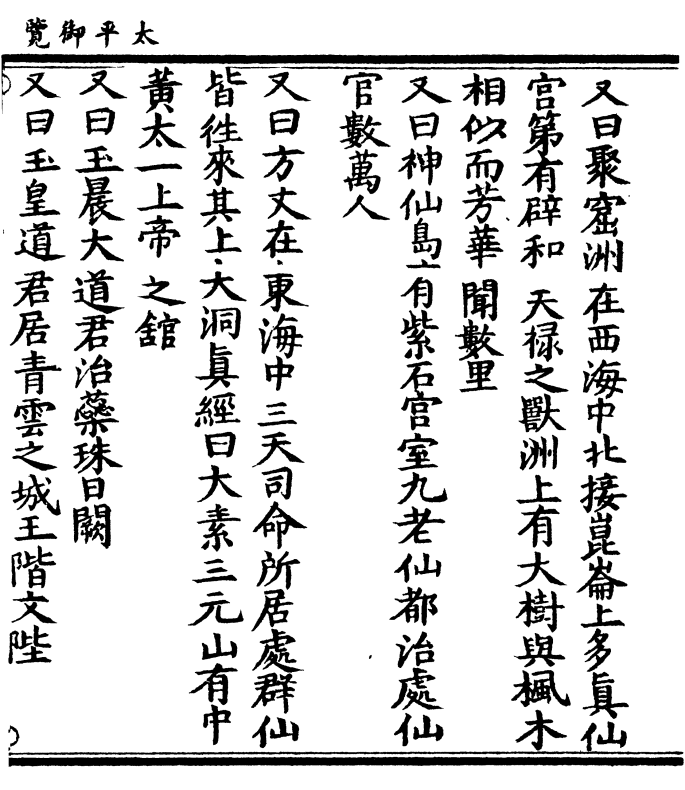 太平御覽
又曰聚窟洲在西海中北接崑崙上多眞仙
宮第有辟和天禄之獸洲上有大樹與楓木
相似而芳華聞數里
又曰神仙島上有紫石宮室九老仙都治處仙
官數萬人
又曰方丈在東海中三天司命所居處群仙
皆徃來其上大洞眞經曰大素三元山有中
黃太一上帝之舘
又曰玉晨大道君治蘂珠日闕
又曰玉皇道君居青雲之城王階文陛